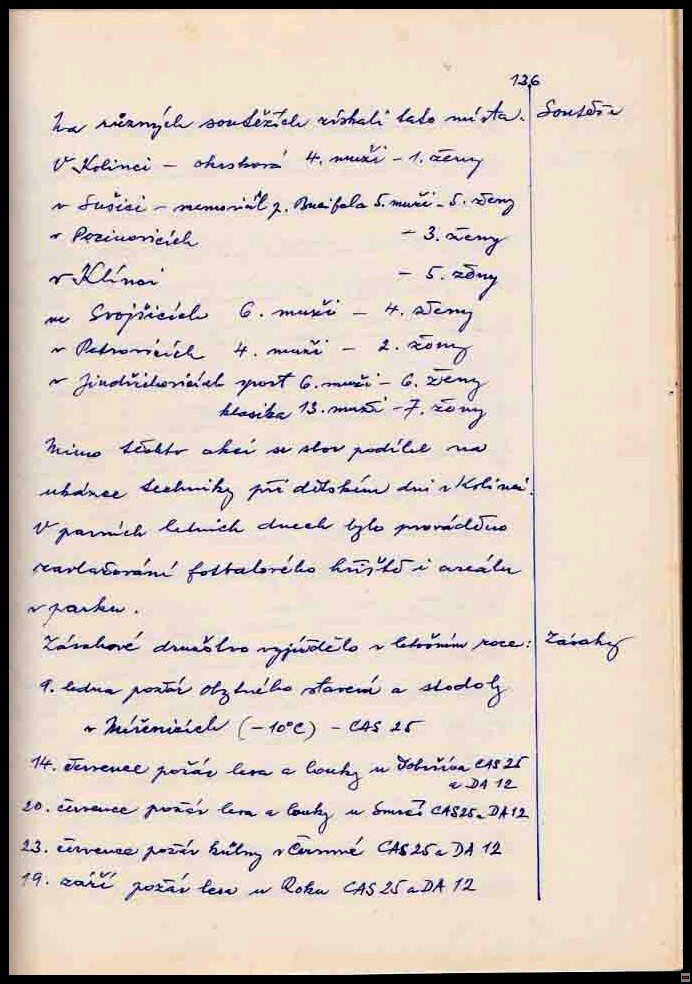 136
Na různých soutěžích získali tato místa. Soutěže
V Kolinci – okrsková 4. muži – 1. ženy
v Sušici – memoriál p. Bucifala 5. muži – 5. ženy
v Pocinovicích – 3. ženy
v Klínci – 5. ženy
ve Svojšicích 6. muži – 4. ženy
v Petrovicích 4. muži – 2. ženy
v Jindřichovicích sport 6. muži – 6. ženy
klasika 13. muži – 7. ženy
Mimo těchto akcí se sbor podílel na
ukázce techniky při dětském dni v Kolinci.
V parních letních dnech bylo prováděno
zavlažování fotbalového hřiště i areálu
v parku.
Zásahové družstvo vyjíždělo v letošním roce: Zásahy
9. ledna požár obytného stavení a stodoly
v Mířenicích (–10°C) – CAS 25
14. července požár lesa a louky u CAS 25
a DA 12
20. července požár lesa a louky u Smrčí CAS 25 a DA 12
23. července požár kůlny v Černné CAS 25 a DA 12
19. září požár lesa u Roku CAS 25 a DA 12